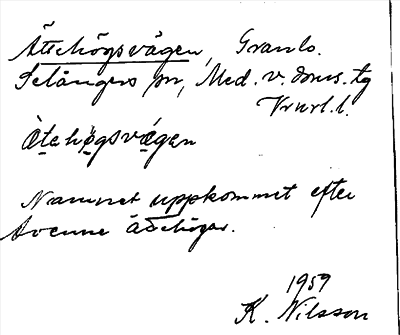 Ättehögsvägen, Granlo.
Selångers sn, Med. v. doms. tg
Vrurl. l.
Ätehögsvägen
Namnet uppkommet efter
tvenne ättehögar.
1959
K. Nilsson